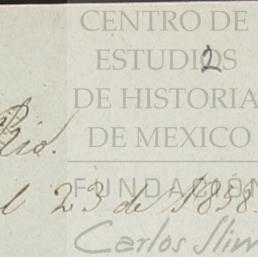 CENTRO DE
ESTUDIOS
2
DE HISTORIA
DE MEXICO
Rio.
FUNDACIÓN
l 23 de 1838.
Carlos Slim